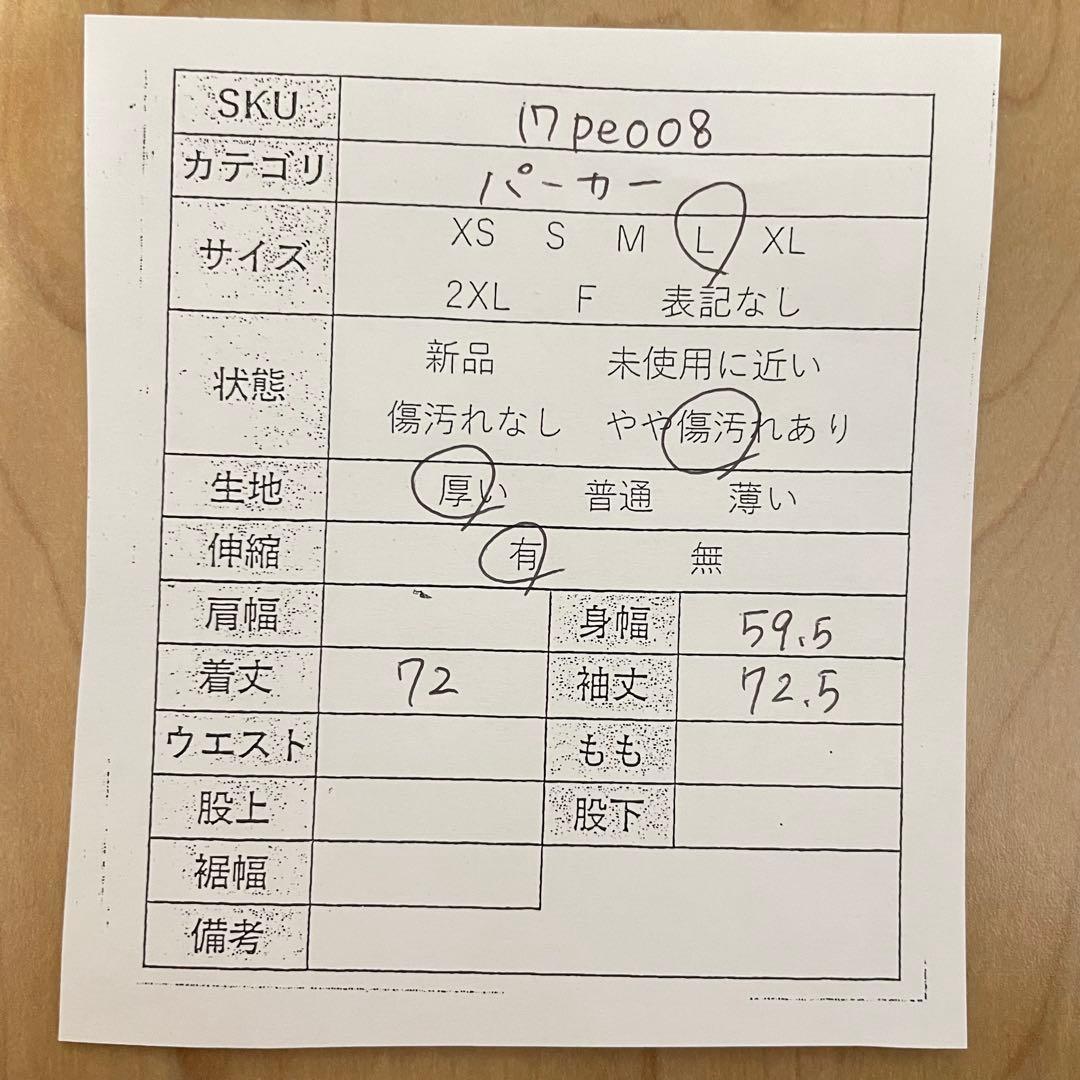 SKU 17pe008
カテゴリ パーカー
サイズ XS S M L XL
2XL F 表記なし
状態 新品 未使用に近い
傷汚れなし やや傷汚れあり
生地 厚い 普通 薄い
伸縮 有 無
肩幅 身幅 59.5
着丈 72 袖丈 72.5
ウエスト もも
股上 股下
裾幅
備考